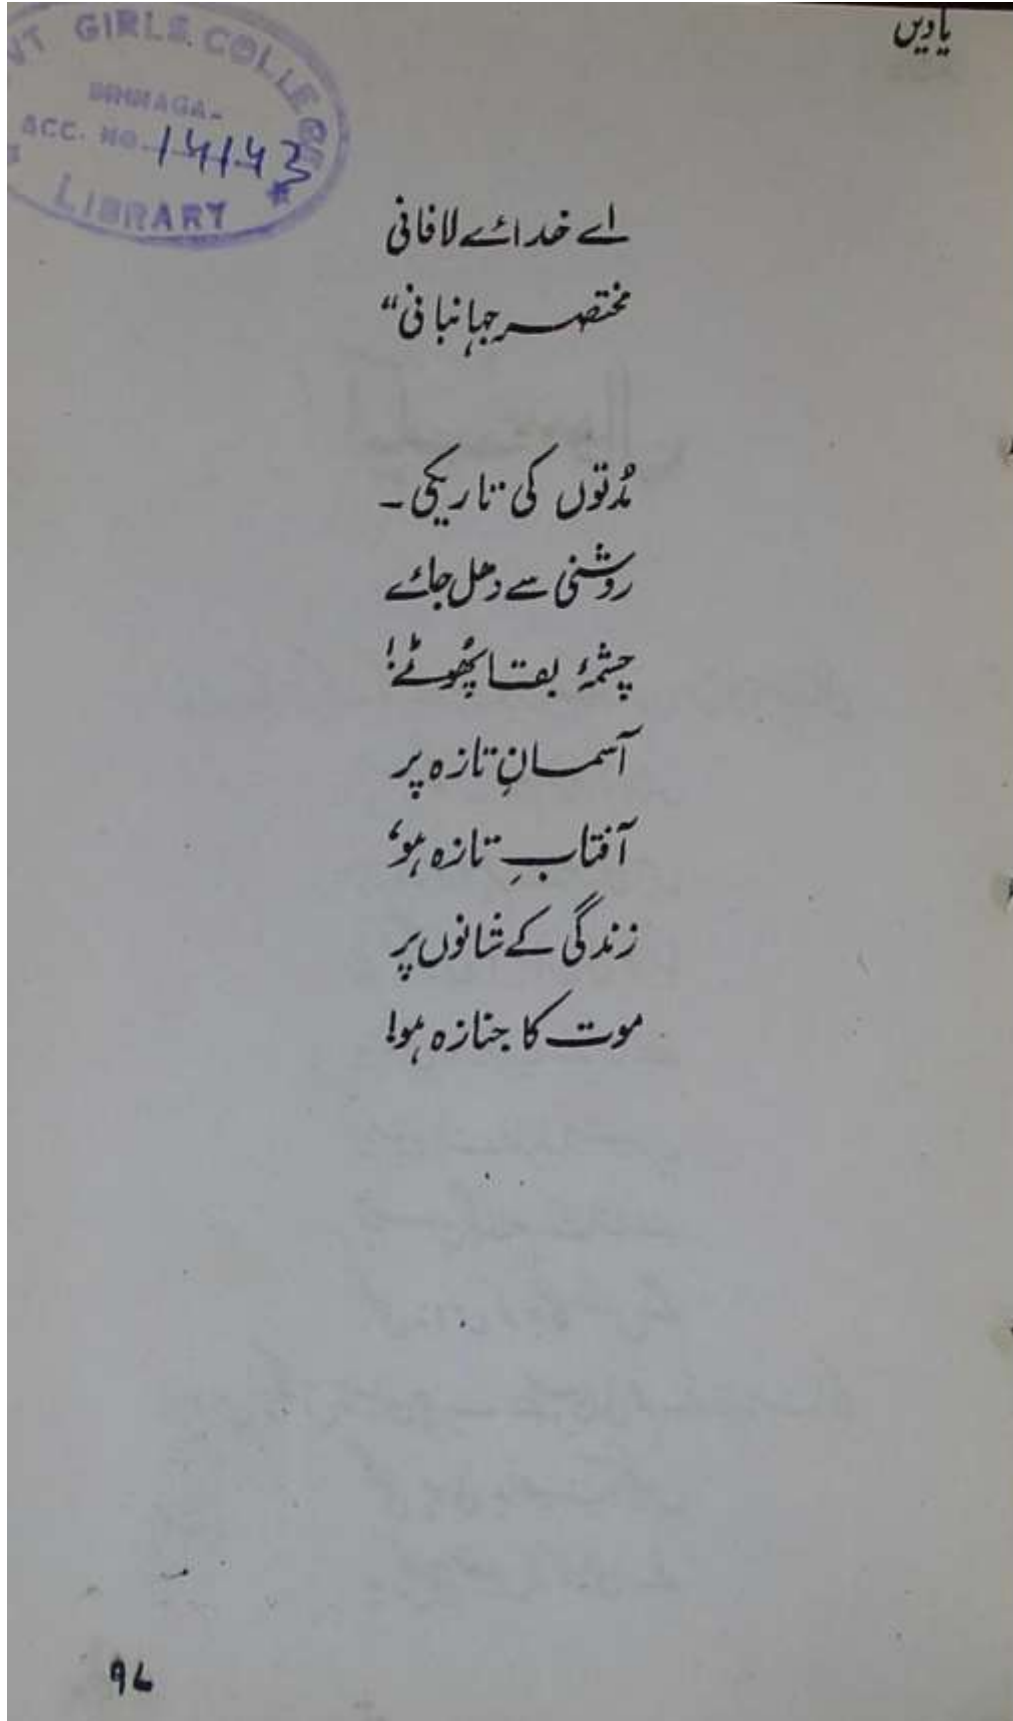 یادیں
NT GIRLS. COLLEGE
ACC. NO. 14143
LIBRARY
اے خدائے لافانی
مختصر جہانبانی“
مُدتوں کی تاریکی ۔
روشنی سے دھل جائے
چشمۂ بقا پھُوٹے!
آسمانِ تازہ پر
آفتابِ تازہ ہو،
زندگی کے شانوں پر
موت کا جنازہ ہو!
۹۷